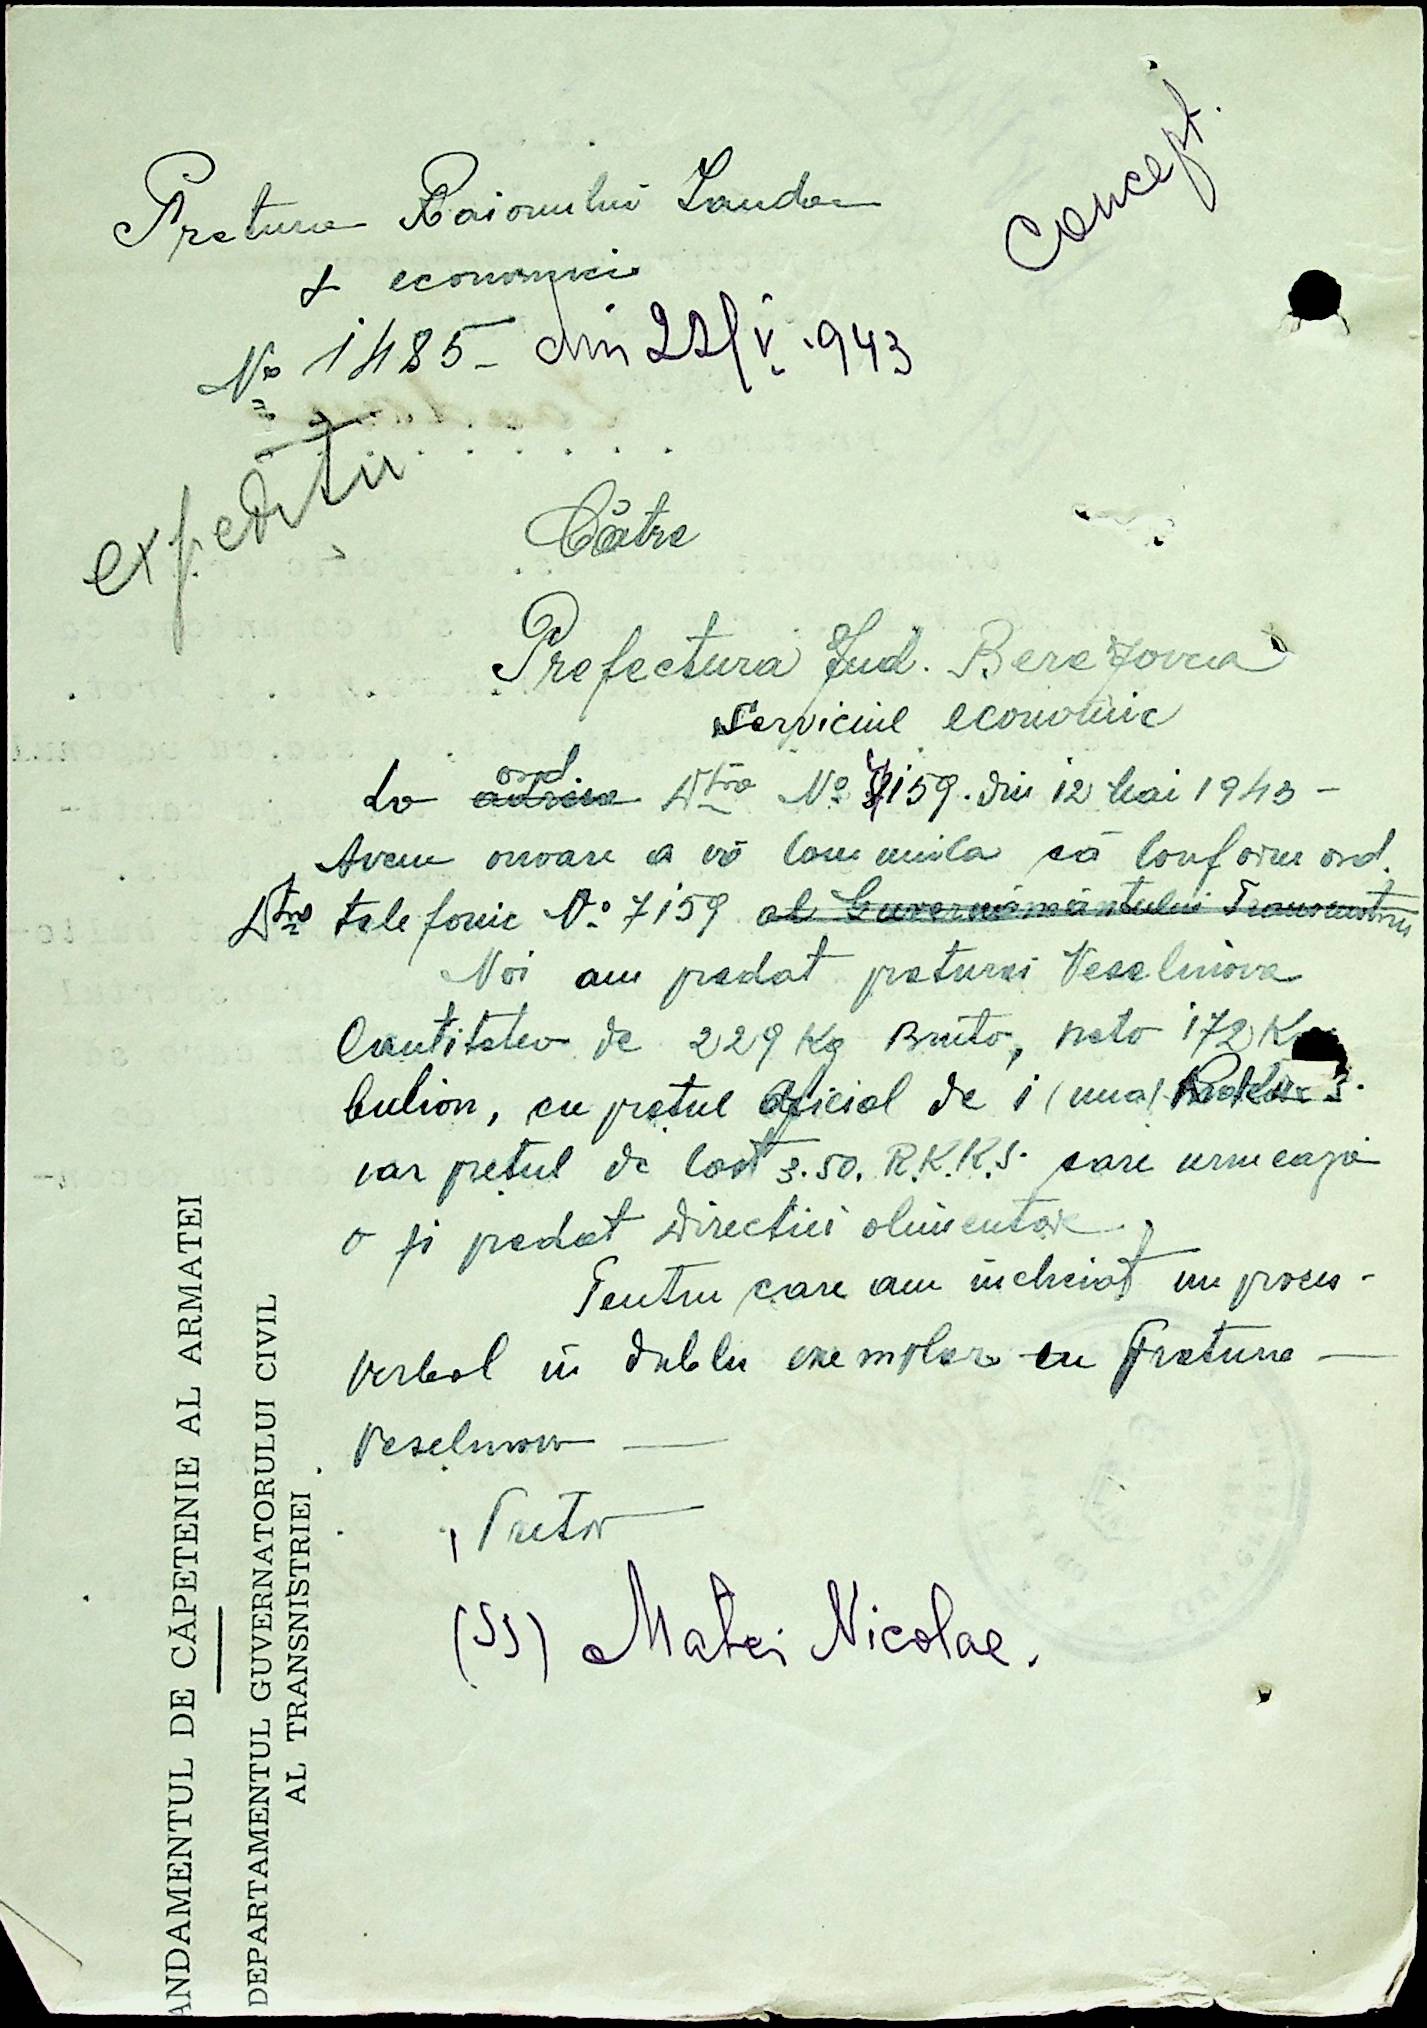 concept.
Pretura Raionului Landau
S economici
No 1485- din 22/V.943
expeditii
Către
Prefectura Jud. Berezovca
serviciul economic
La adresa ord. Dtră No 7159. din 12 Mai 1943 -
Avem onoare a vă comunica că conform ord.
Dtră telefonic No 7159 al Guvernământului Transnistriei
Noi am predat preturei Veselinova
Cantitatea de 229 Kg Bruto, neto 172 K
bulion, cu prețul oficial de 1 (una)
iar prețul de cost 3.50. R.K.K.S. care urmează
a fi predat Direcției alimentare.
Pentru care am încheiat un proces-
verbal în dublu exemplar cu Pretura
Veselinova
Pretor
(SS) Matei Nicolae.
ANDAMENTUL DE CĂPETENIE AL ARMATEI
DEPARTAMENTUL GUVERNATORULUI CIVIL
AL TRANSNISTRIEI